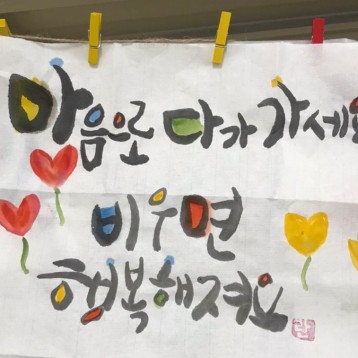 마음으로 다가가세요
비우면
행복해져요